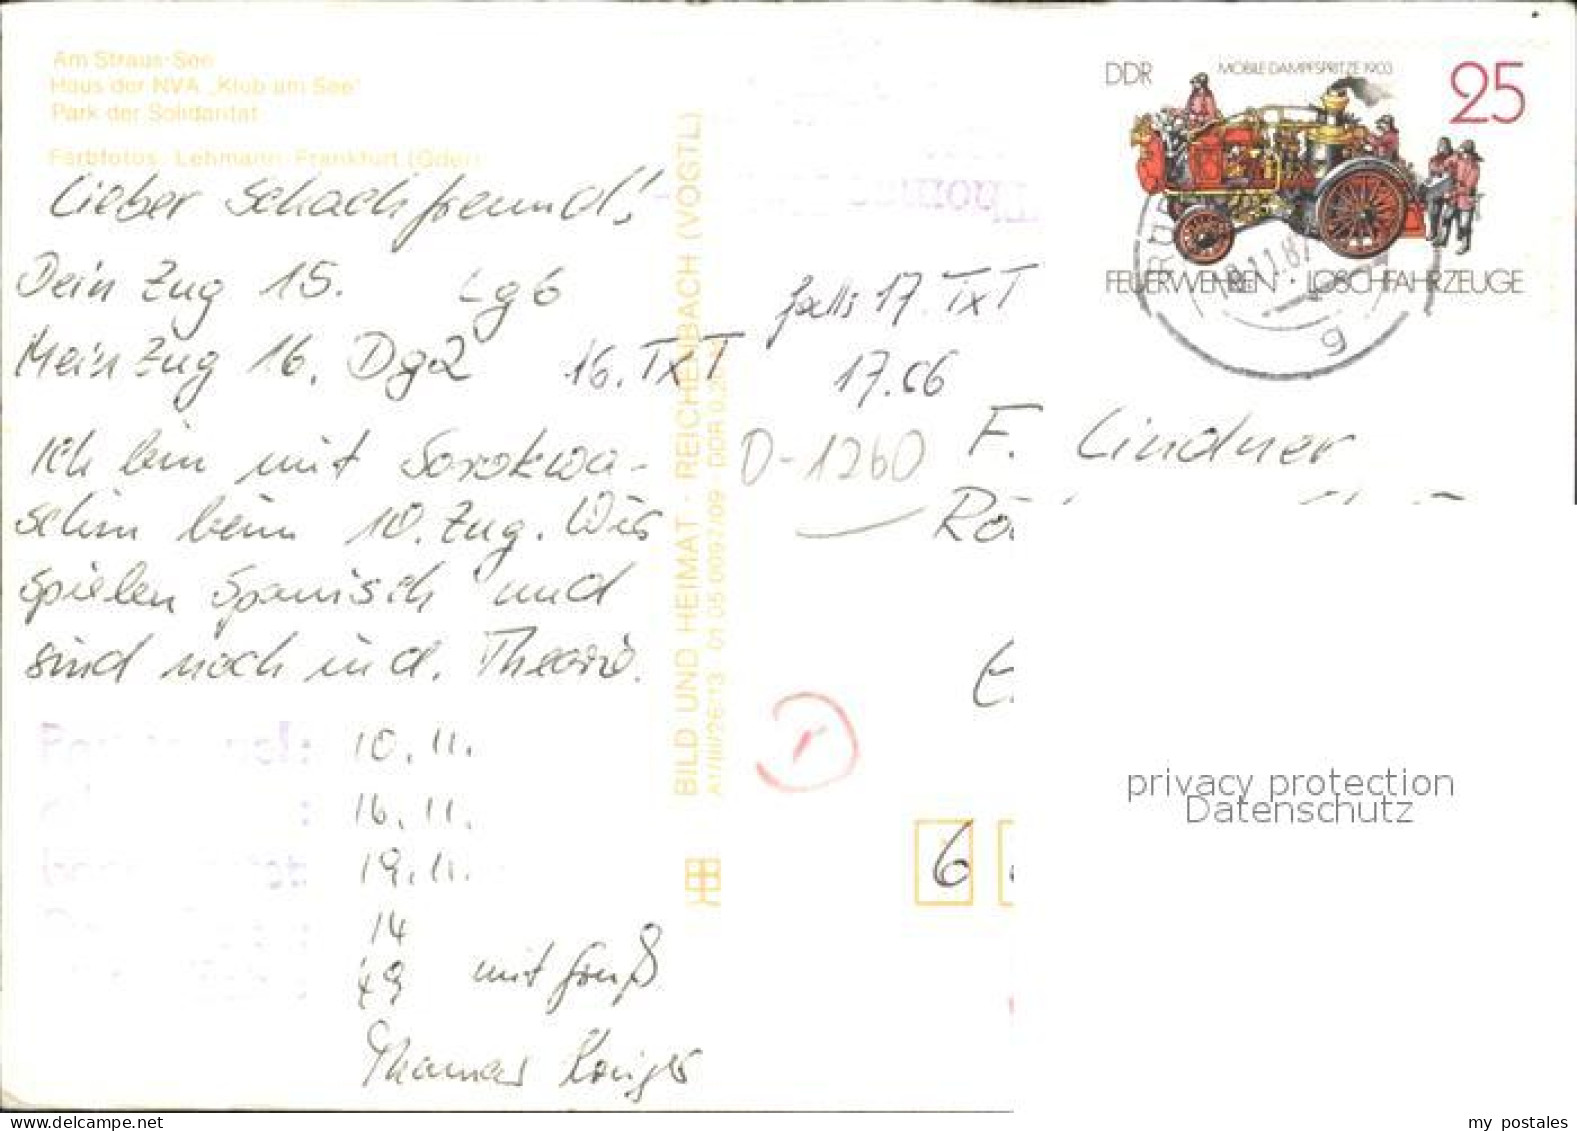 Am Straus-See
Haus der NVA „Klub am See"
Park der Solidarität
Farbfotos: Lehmann, Frankfurt (Oder)
Lieber Schachfreund!
Dein Zug 15. Lg6
Mein Zug 16. Dg2 16. TxT
falls 17. TxT
17. c6
Ich bin mit Sorokwa-
schin beim 10. Zug. Wir
spielen Spanisch und
sind noch in d. Theorie.
10. 11.
16. 11.
19. 11.
14
49
mit Gruß
Thomas
BILD UND HEIMAT · REICHENBACH (VOGTL)
A1/III/26/13 01 05 0097/09 DDR
DDR
MOBILE DAMPFSPRITZE 1903
25
FEUERWEHREN · LÖSCHFAHRZEUGE
11.87
g
D-1260
F. Lindner
6
privacy protection
Datenschutz
my postales